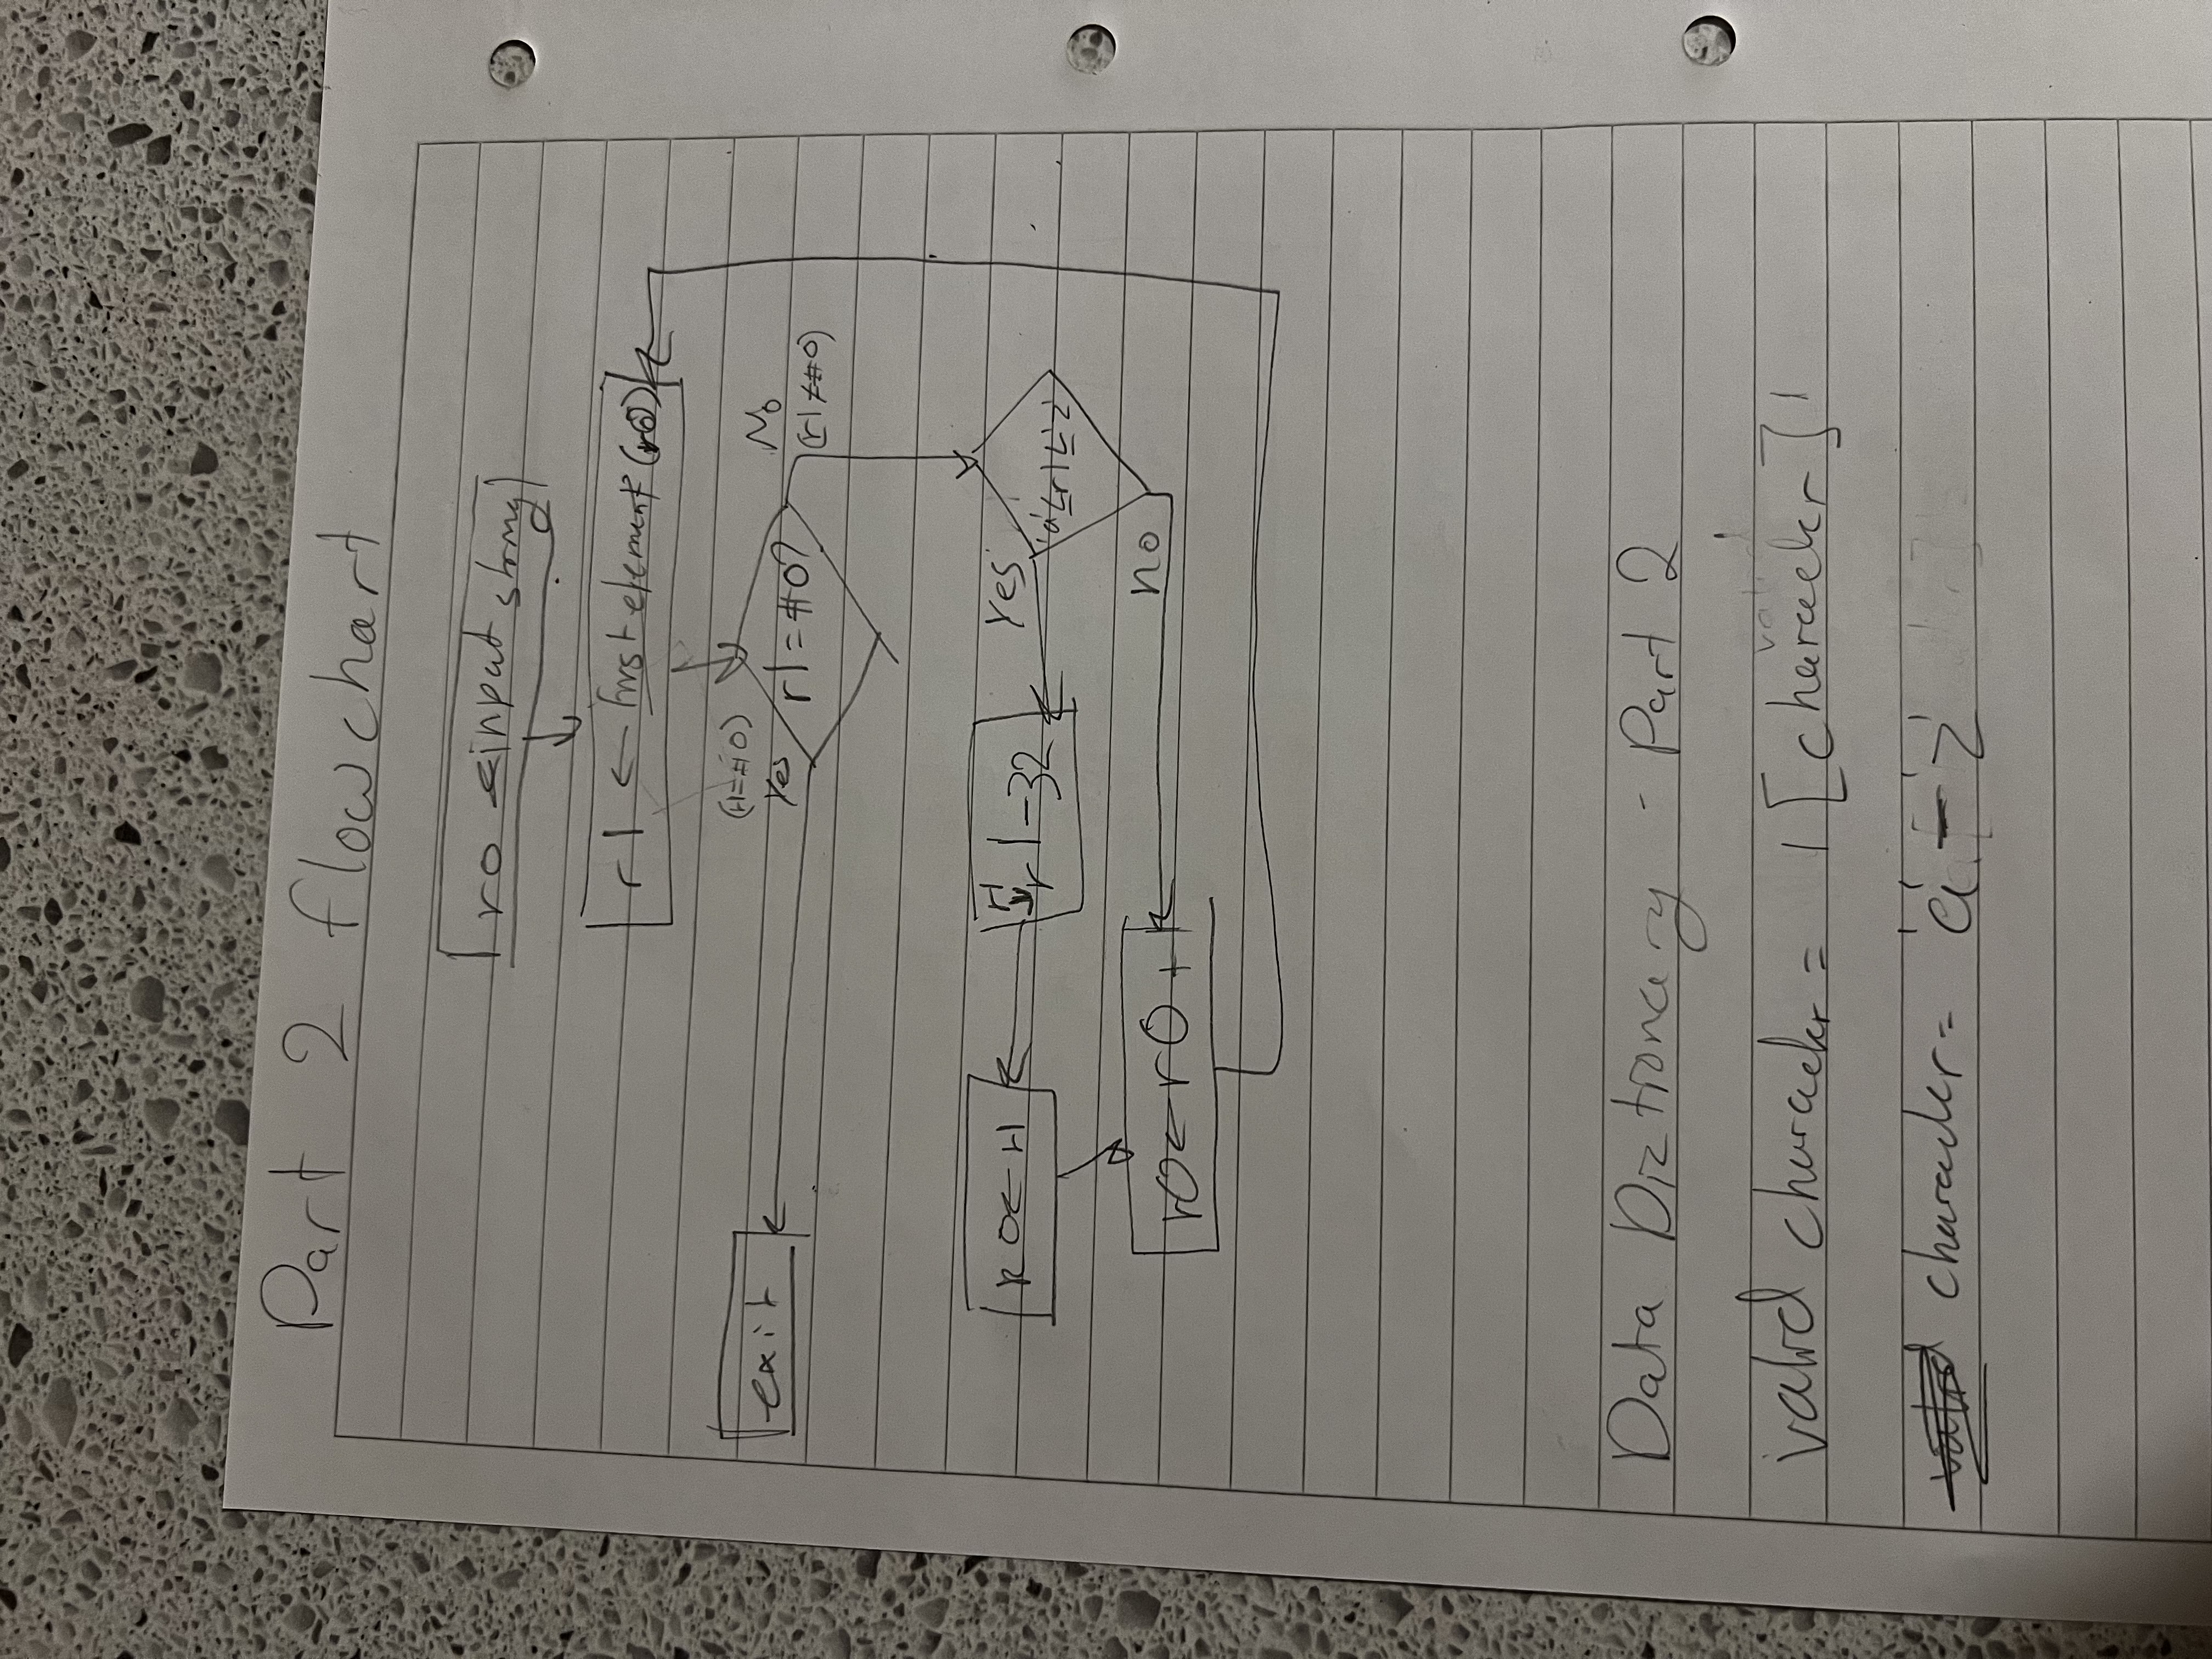 Part 2 flowchart
r0 ← input string
r1 ← first element (r0)
(r1=#0)
Yes
r1=#0?
No
(r1≠#0)
exit
r0←r1
r1
←
r1-32
Yes
'a'≤r1≤'z'
r0←r0+1
no
Data Dictionary - Part 2
valid
valid character = 1[character]1
character = 'a'-'z'